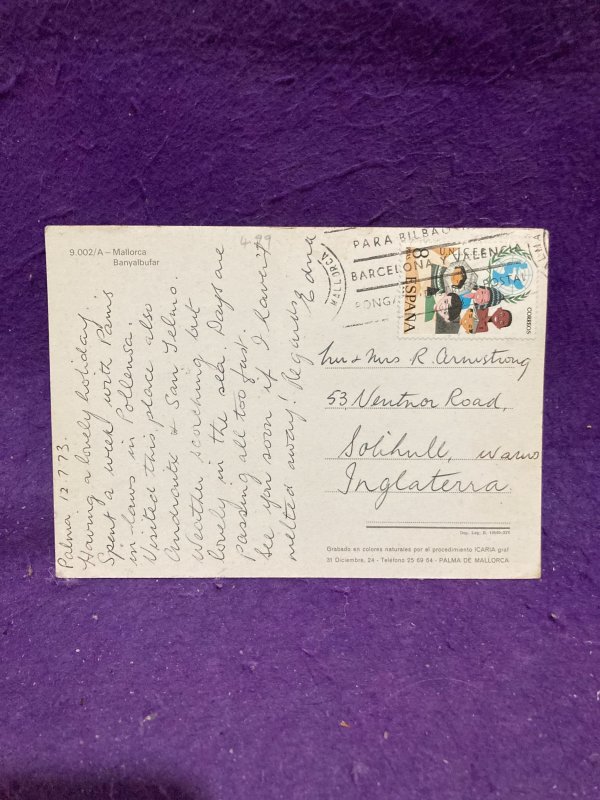 9.002/A – Mallorca
Banyalbufar
499
Palma 12.7.73.
Having a lovely holiday.
Spent a week with Pam's
in-laws in Pollensa.
Visited this place also
Andraitx & San Telmo.
Weather scorching but
lovely in the sea. Days are
passing all too fast.
See you soon if I haven't
melted away! Regards
Edna
MALLORCA
PARA BILBAO
BARCELONA Y VALENCIA
PONGA
UN
POSTAL
8
PTAS
ESPAÑA
CORREOS
Mr & Mrs R. Armstrong
53, Ventnor Road,
Solihull, Warws
Inglaterra.
Grabado en colores naturales por el procedimiento ICARIA graf
31 Diciembre, 24 - Teléfono 25 69 64 - PALMA DE MALLORCA